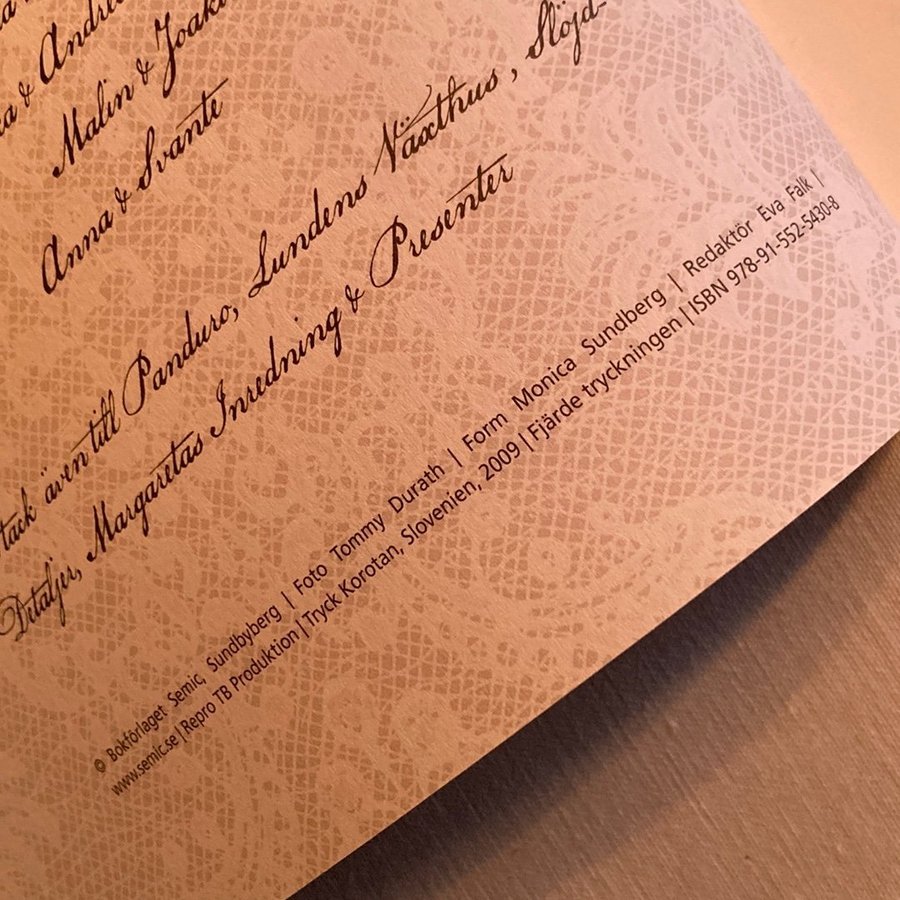 & Andrea
Malin & Joaki
Anna & Svante
tack även till Panduro, Lundens Växthus, Slöjd-
Detaljer, Margaretas Inredning & Presenter
© Bokförlaget Semic, Sundbyberg | Foto Tommy Durath | Form Monica Sundberg | Redaktör Eva Falk |
www.semic.se | Repro TB Produktion | Tryck Korotan, Slovenien, 2009 | Fjärde tryckningen | ISBN 978-91-552-5430-8